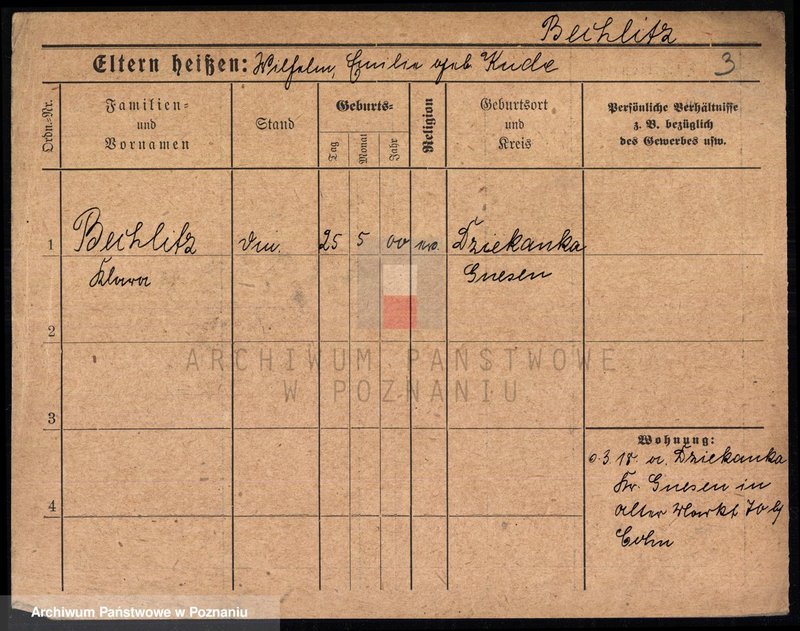 Bechlitz
Eltern heißen: Wilhelm, Emilie geb Kude
3
Ordn.-Nr.
Familien-
und
Vornamen
Stand
Geburts-
Tag
Monat
Jahr
Religion
Geburtsort
und
Kreis
Persönliche Verhältnisse
z. B. bezüglich
des Gewerbes usw.
1 Bechlitz 25 5 00 Dziekanka
Klara Gnesen
2
ARCHIWUM PAŃSTWOWE
W POZNANIU
3
Wohnung:
3. 18. Dziekanka
Kr. Gnesen in
4
Alter Markt 70
Archiwum Państwowe w Poznaniu